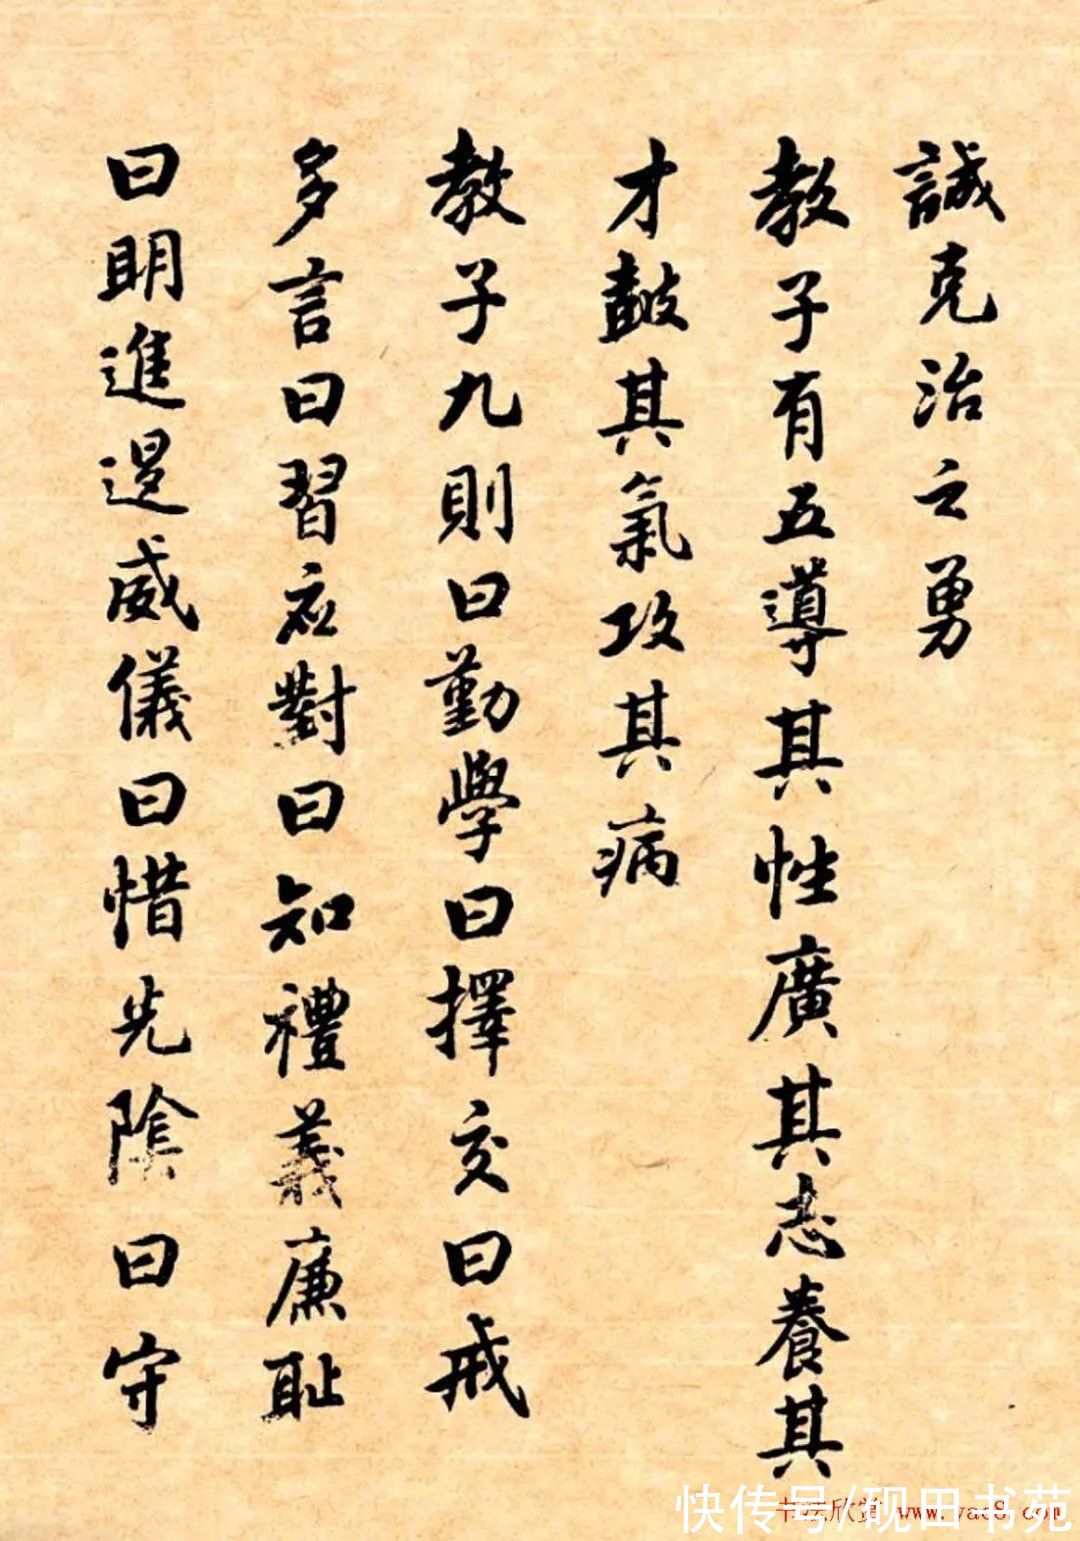 誠克治之勇
教子有五導其性廣其志養其
才鼓其氣攻其病
教子九則曰勤學曰擇交曰戒
多言曰習應對曰知禮義廉恥
曰明進退威儀曰惜光陰曰守
快传号/砚田书苑
书法欣赏 www.yac8.com